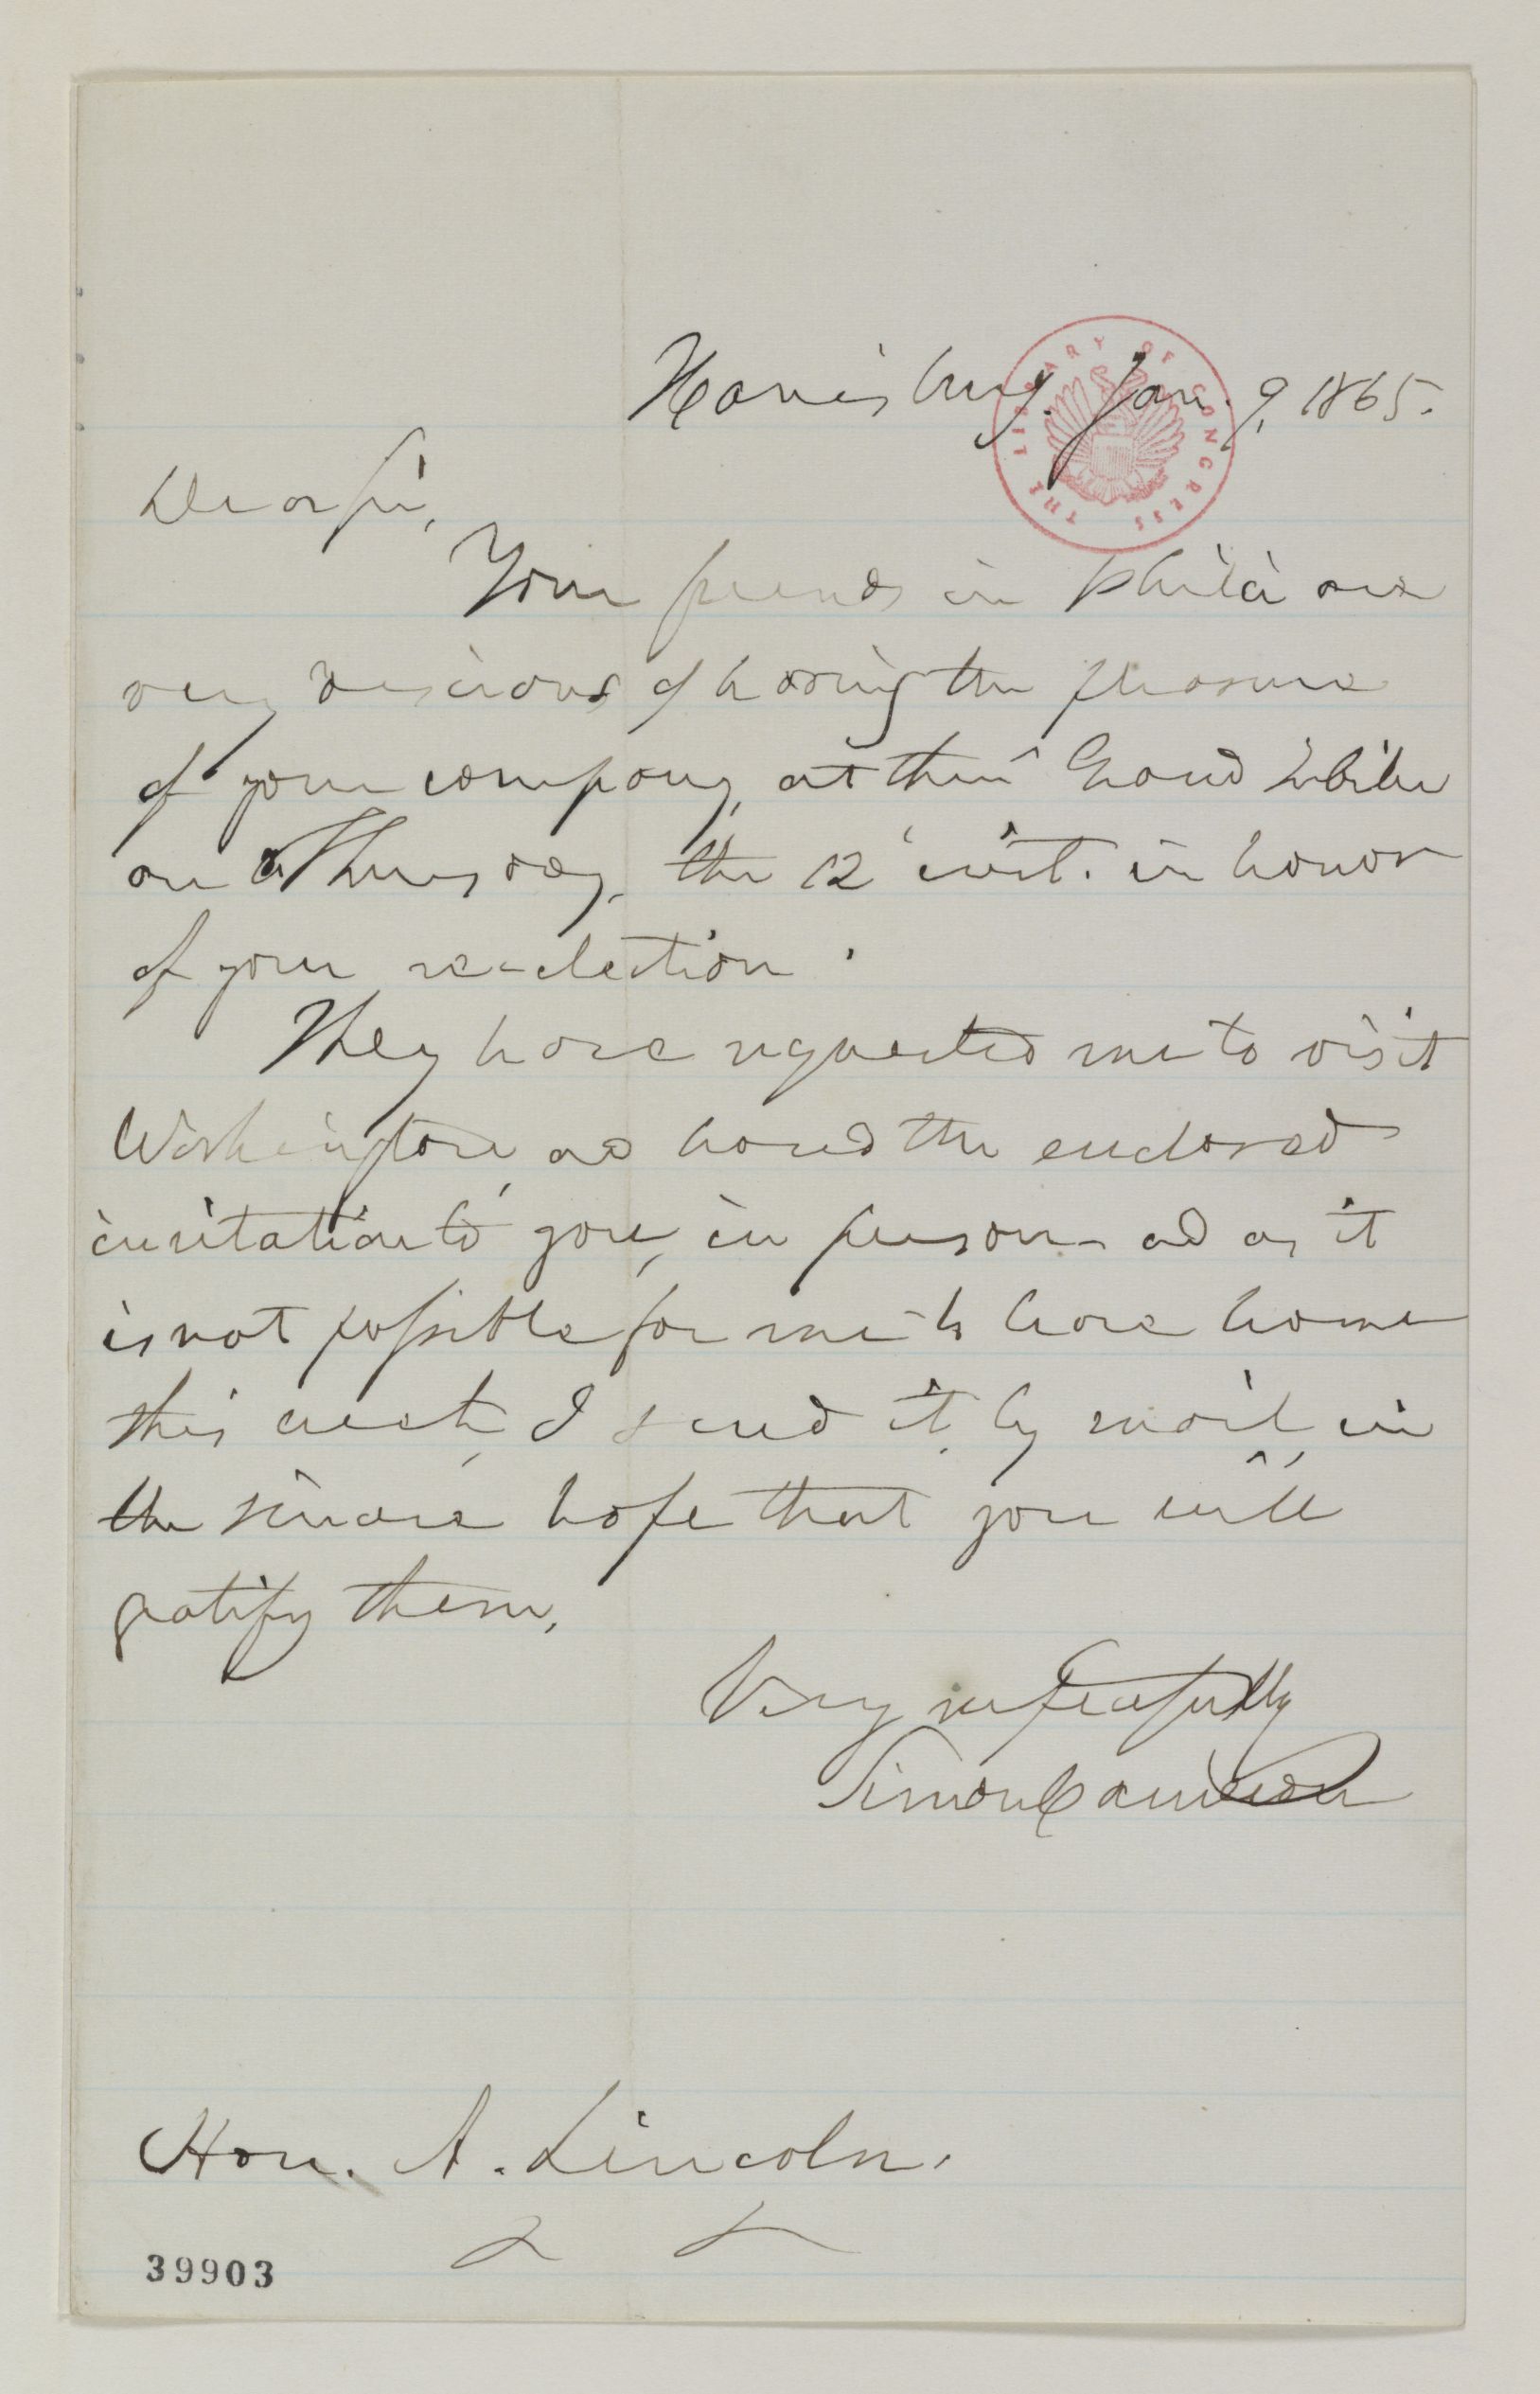 Harrisburg. Jan. 9, 1865.
THE LIBRARY OF CONGRESS
Dear Sir,
Your friends in Phila are
very desirous of having the pleasure
of your company, at their Grand Jubilee
on Thursday, the 12 inst. in honor
of your re-election.
They have requested me to visit
Washington, and hand the enclosed
invitation to you, in person - and as it
is not possible for me to leave home
this week, I send it, by mail, in
the sincere hope that you will
gratify them.
Very respectfully
Simon Cameron
Hon. A. Lincoln.
39903